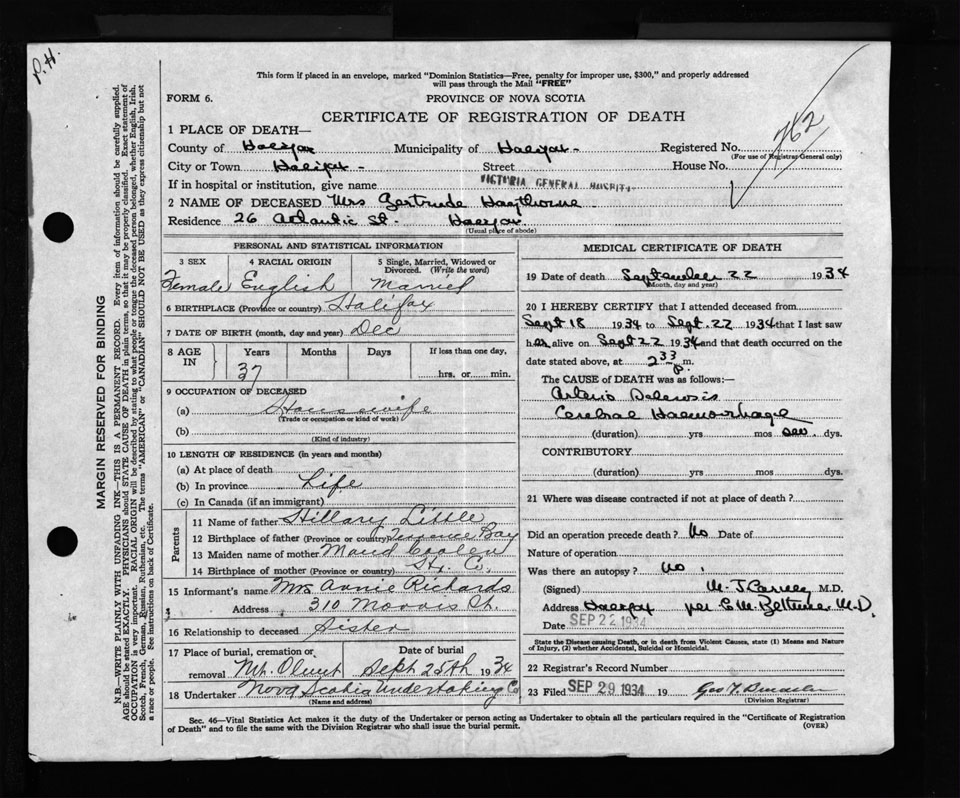 P.H.
This form if placed in an envelope, marked "Dominion Statistics—Free, penalty for improper use, $300," and properly addressed
will pass through the Mail "FREE"
FORM 6.
PROVINCE OF NOVA SCOTIA
CERTIFICATE OF REGISTRATION OF DEATH
762
1 PLACE OF DEATH—
County of Halifax Municipality of Halifax - Registered No.
(For use of Registrar General only)
City or Town Halifax - Street House No.
If in hospital or institution, give name VICTORIA GENERAL HOSPITAL
2 NAME OF DECEASED Mrs Gertrude Hawthorne
Residence 26 Atlantic St. Halifax
(Usual place of abode)
PERSONAL AND STATISTICAL INFORMATION
3 SEX 4 RACIAL ORIGIN 5 Single, Married, Widowed or Divorced. (Write the word)
Female English Married
6 BIRTHPLACE (Province or country) Halifax
7 DATE OF BIRTH (month, day and year) Dec
8 AGE IN Years Months Days If less than one day,
37 hrs. or min.
9 OCCUPATION OF DECEASED
(a) Housewife
(Trade or occupation or kind of work)
(b)
(Kind of industry)
10 LENGTH OF RESIDENCE (in years and months)
(a) At place of death
(b) In province Life
(c) In Canada (if an immigrant)
Parents
11 Name of father Hillary Little
12 Birthplace of father (Province or country) Terrence Bay
13 Maiden name of mother Maud Coolen
14 Birthplace of mother (Province or country) Hx. Co.
15 Informant's name Mrs Annie Richards
Address 310 Morris St.
16 Relationship to deceased Sister
17 Place of burial, cremation or removal Date of burial
Mt. Olivet Sept 25th 1934
18 Undertaker Nova Scotia Undertaking Co
(Name and address)
MEDICAL CERTIFICATE OF DEATH
19 Date of death September 22 1934
(Month, day and year)
20 I HEREBY CERTIFY that I attended deceased from
Sept 18 1934 to Sept. 22 1934 that I last saw
her alive on Sept 22 1934 and that death occurred on the
date stated above, at 2 33 p. m.
The CAUSE of DEATH was as follows:—
Arterio Sclerosis
Cerebral Haemorrhage
(duration) yrs mos dys.
CONTRIBUTORY
(duration) yrs mos dys.
21 Where was disease contracted if not at place of death?
Did an operation precede death? No Date of
Nature of operation
Was there an autopsy? No.
(Signed) M.D.
Address Halifax per M.D.
Date SEP 22 1934
State the Disease causing Death, or in death from Violent Causes, state (1) Means and Nature
of Injury, (2) whether Accidental, Suicidal or Homicidal.
22 Registrar's Record Number
23 Filed SEP 29 1934 19
(Division Registrar)
Sec. 46—Vital Statistics Act makes it the duty of the Undertaker or person acting as Undertaker to obtain all the particulars required in the "Certificate of Registration
of Death" and to file the same with the Division Registrar who shall issue the burial permit.
(OVER)
MARGIN RESERVED FOR BINDING
N.B.—WRITE PLAINLY WITH UNFADING INK—THIS IS A PERMANENT RECORD. Every item of information should be carefully supplied.
AGE should be stated EXACTLY. PHYSICIANS should STATE CAUSE OF DEATH in plain terms, so that it may be properly classified. Exact statement of
OCCUPATION is very important. RACIAL ORIGIN will be described by stating to what people or tongue the deceased person belonged, whether English, Irish,
Scotch, French, German, Russian, Ruthenian, etc. The terms "AMERICAN" or "CANADIAN" SHOULD NOT BE USED as they express citizenship but not
a race or people. See instructions on back of Certificate.